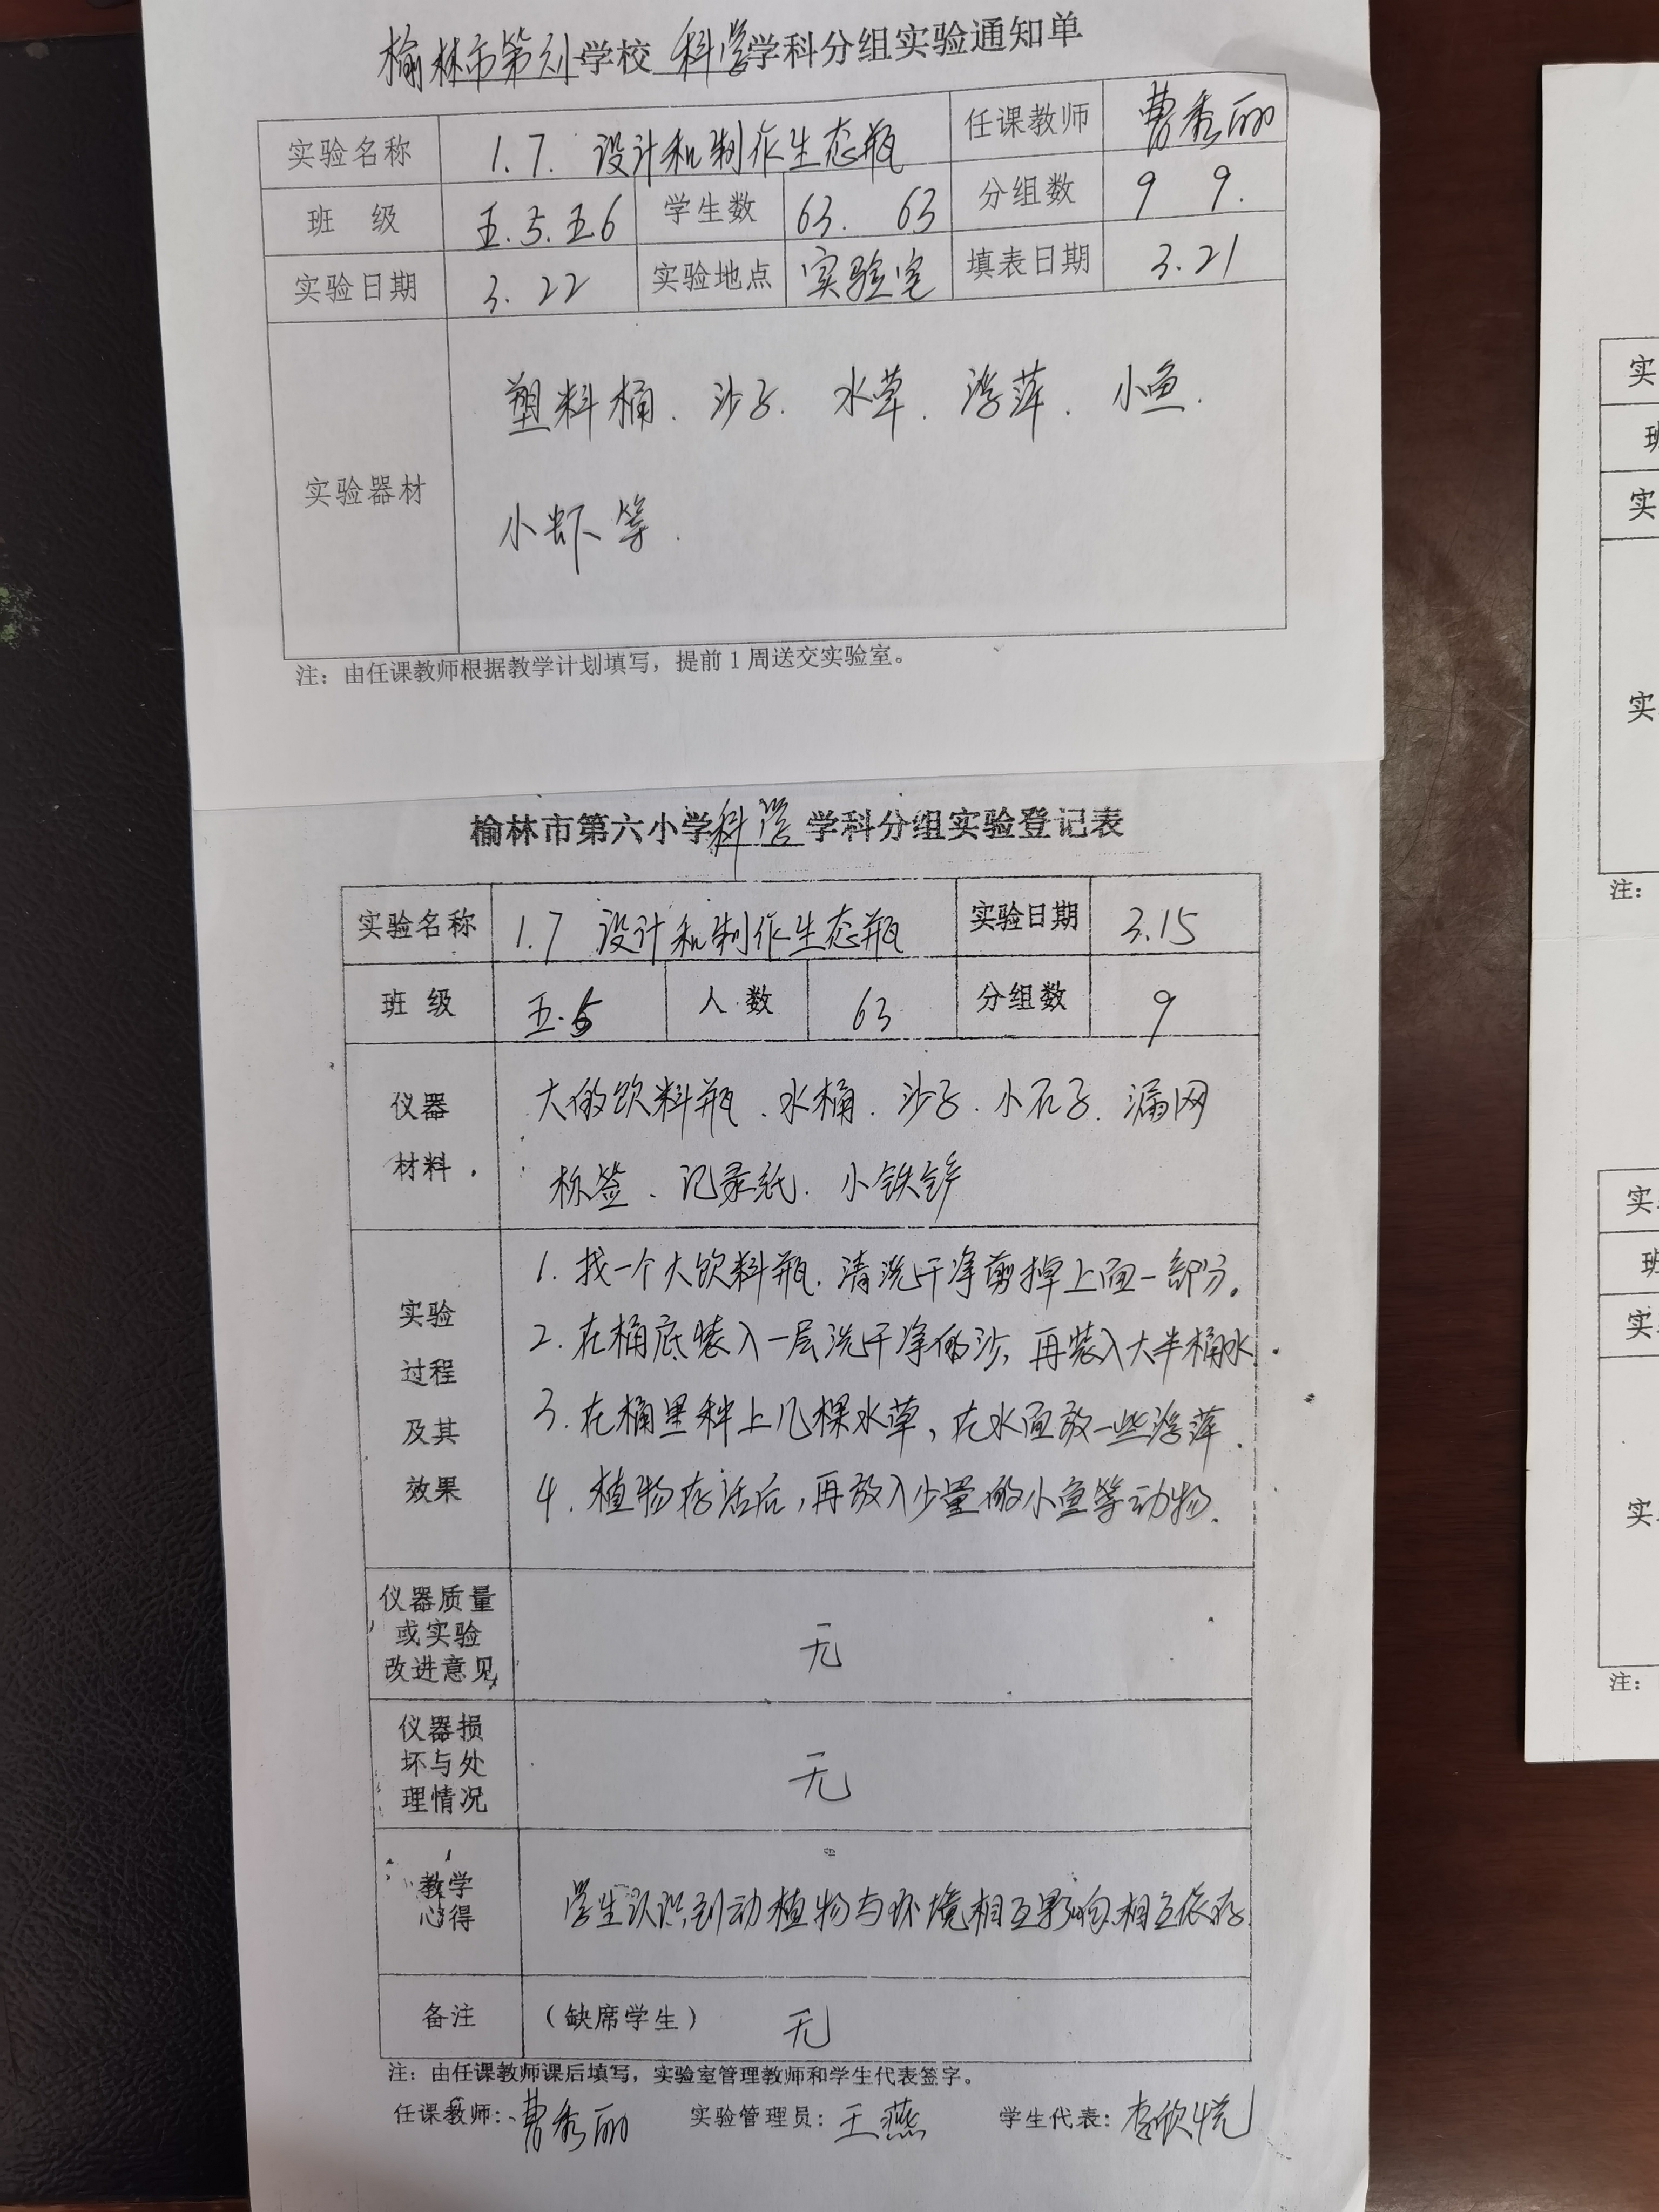 榆林市第六小学校 科学学科分组实验通知单
实验名称 1.7. 设计和制作生态瓶 任课教师 曹秀丽
班 级 五.5.五6 学生数 63. 63 分组数 9 9.
实验日期 3.22 实验地点 实验室 填表日期 3.21
实验器材
塑料桶、沙子、水草、浮萍、小鱼、
小虾等.
注：由任课教师根据教学计划填写，提前1周送交实验室。
榆林市第六小学科学学科分组实验登记表
实验名称 1.7 设计和制作生态瓶 实验日期 3.15
班 级 五.5 人数 63 分组数 9
仪器
材料
大的饮料瓶、水桶、沙子、小石子、漏网
标签、记录纸、小铁铲
实验
过程
及其
效果
1. 找一个大饮料瓶.清洗干净剪掉上面一部分。
2. 在桶底装入一层洗干净的沙，再装入大半桶水.
3. 在桶里种上几棵水草，在水面放一些浮萍.
4. 植物存活后，再放入少量的小鱼等动物.
仪器质量
或实验
改进意见
无
仪器损
坏与处
理情况
无
教学
心得
学生认识到动植物与环境相互影响相互依存.
备注 （缺席学生） 无
注：由任课教师课后填写，实验室管理教师和学生代表签字。
任课教师：曹秀丽 实验管理员：王燕 学生代表：李欣悦
实
班
实
实
注：
实
班
实
实
注：